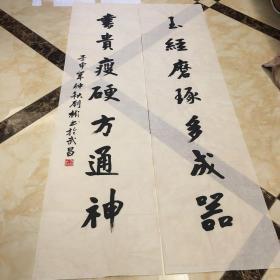 玉經磨琢多成器
書貴瘦硬方通神
壬申年仲秋劉
書於武昌